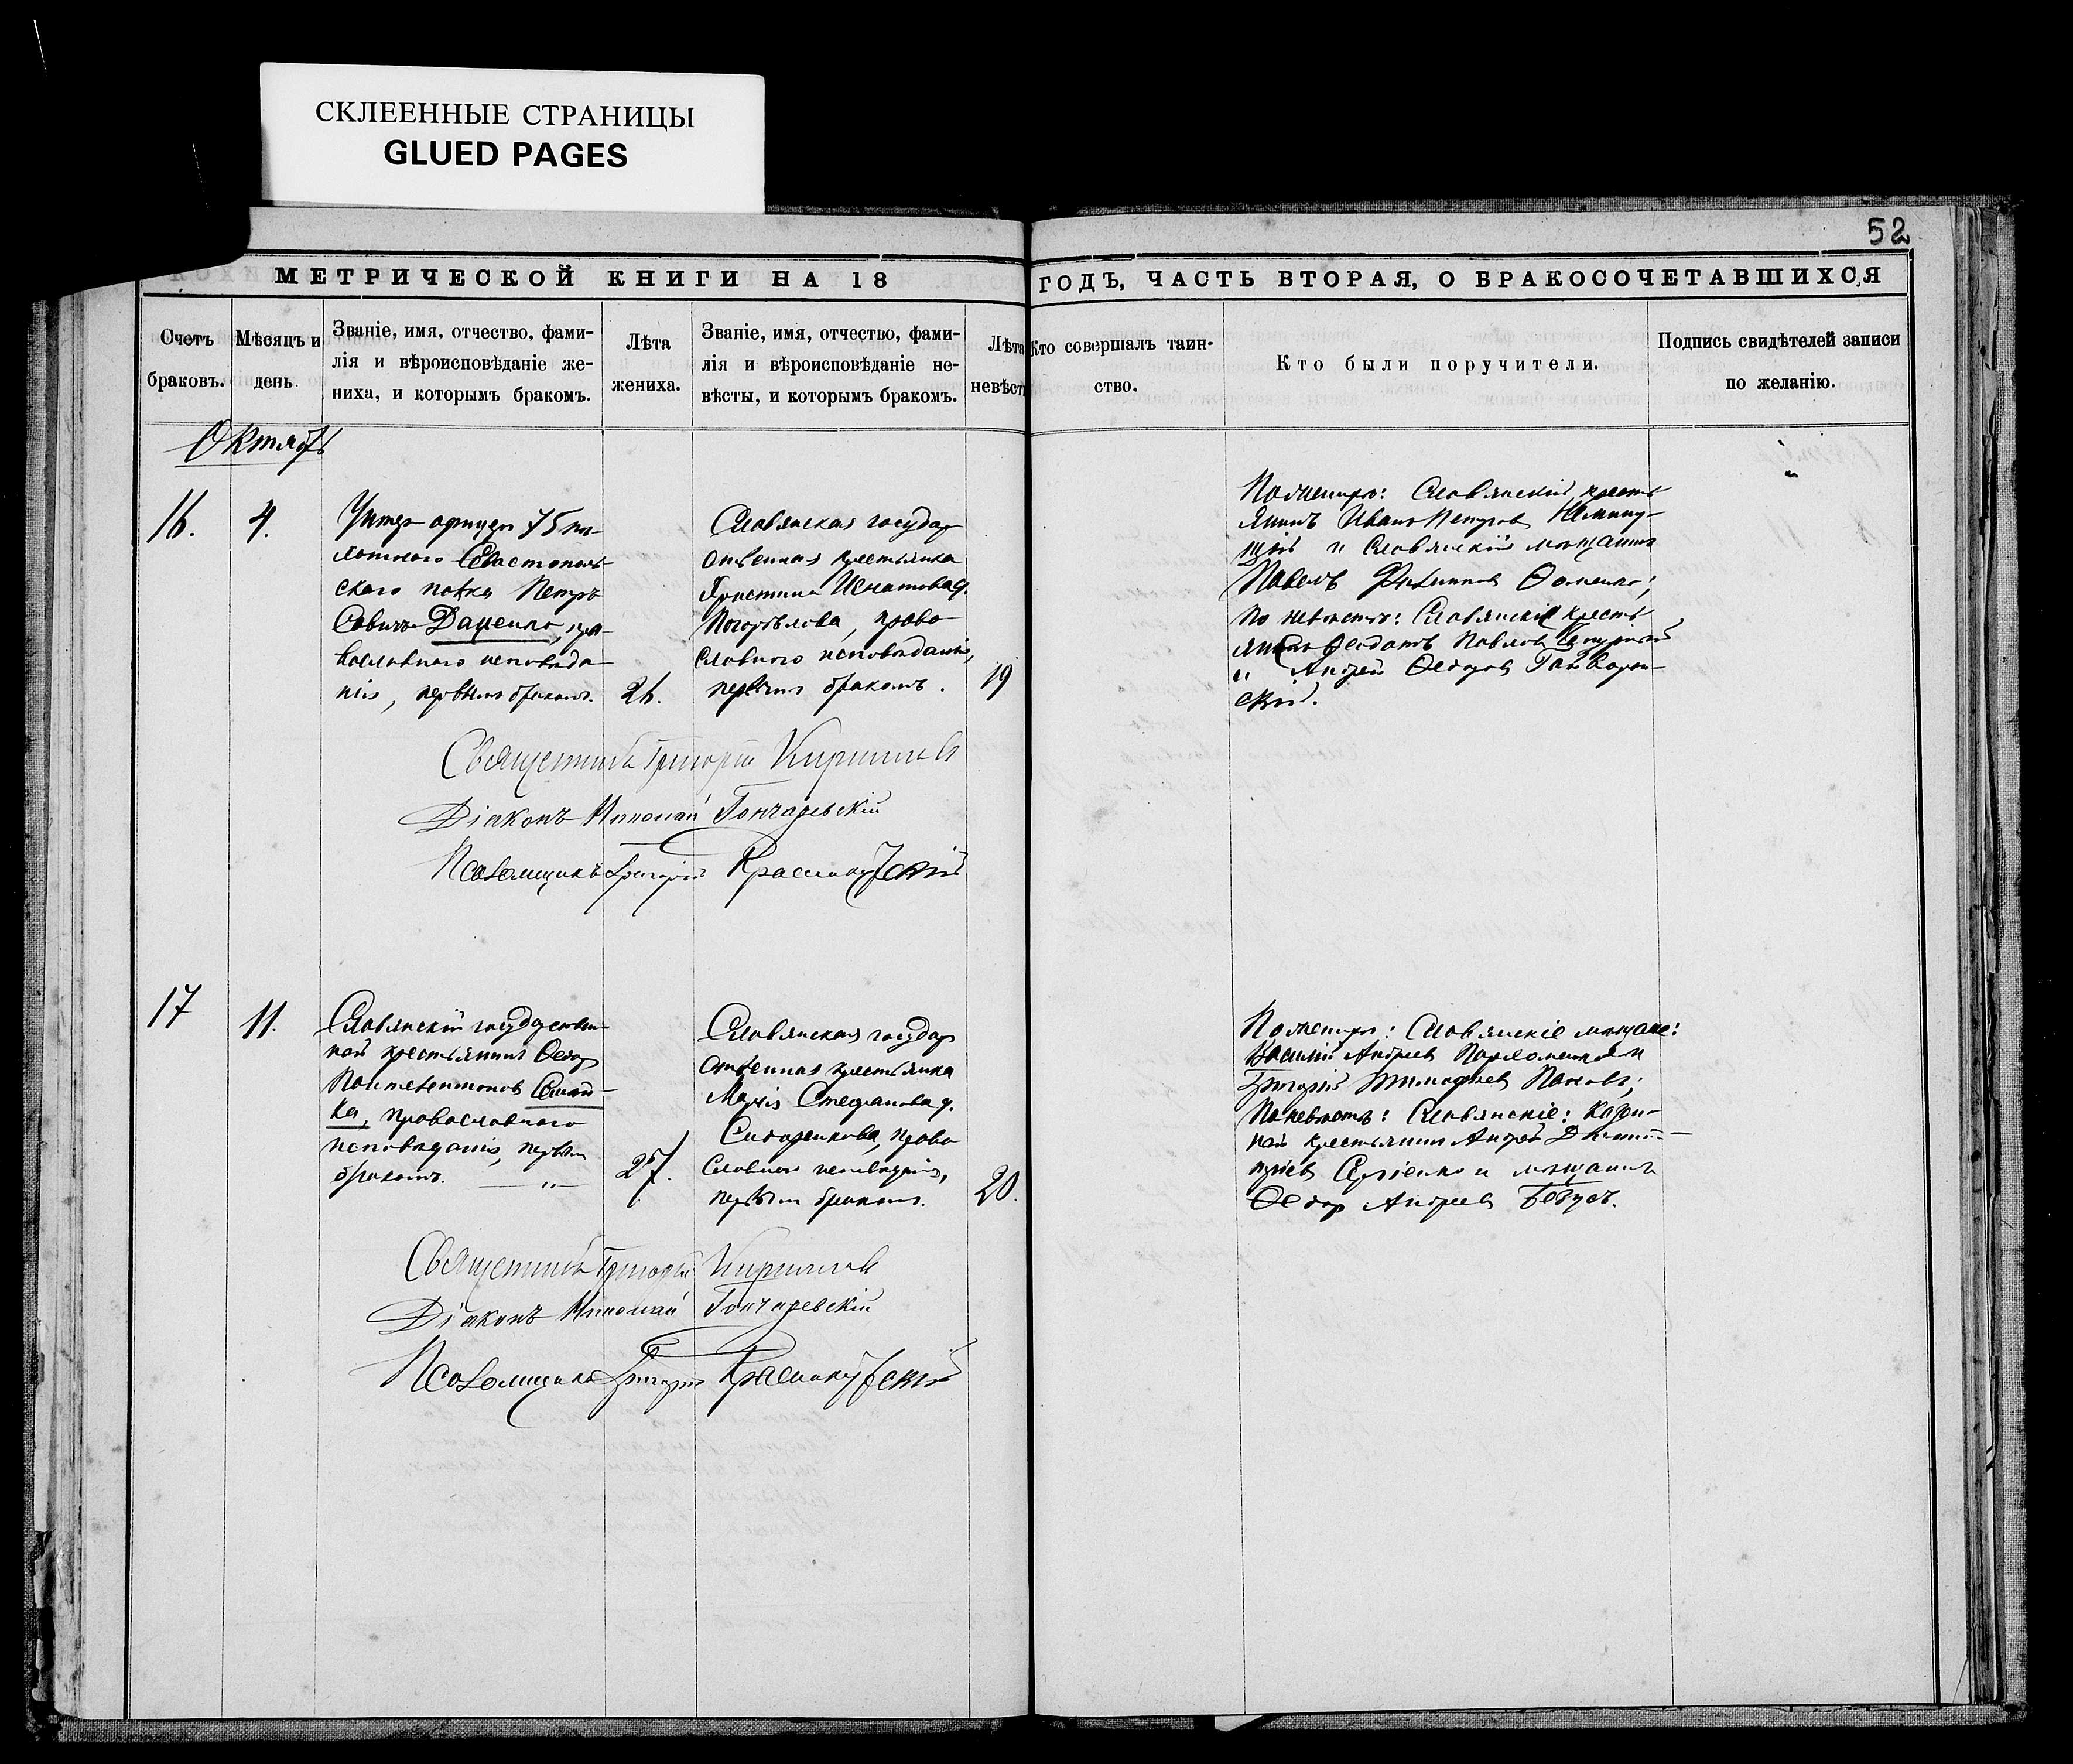 СКЛЕЕННЫЕ СТРАНИЦЫ
GLUED PAGES
52
МЕТРИЧЕСКОЙ КНИГИ НА 18
ГОДЪ, ЧАСТЬ ВТОРАЯ, О БРАКОСОЧЕТАВШИХСЯ
Счетъ
браковъ.
Мѣсяцъ и
день.
Званіе, имя, отчество, фами-
лія и вѣроисповѣданіе же-
ниха, и которымъ бракомъ.
Лѣта
жениха.
Званіе, имя, отчество, фами-
лія и вѣроисповѣданіе не-
вѣсты, и которымъ бракомъ.
Лѣта
невѣст
Кто совершалъ таин-
ство.
Кто были поручители.
Подпись свидѣтелей записи
по желанію.
Октябрь
16.
4.
Унтер офицеръ 75 пѣ-
хотнаго Севастополь-
скаго полка Петръ
Саввичъ Даценко, пра-
вославнаго исповѣда-
нія, первымъ бракомъ.
26.
Славянская государ
ственная крестьянка
Христина Игнатова д.
Погорѣлова, право-
славнаго исповѣданія,
первымъ бракомъ.
19
По женихѣ: Славянскій кресть
янинъ Иванъ Петровъ
и Славянскій мѣщанинъ
Павелъ Филипповъ Ѳоменко;
по невѣстѣ: Славянскіе кресть
яне Ѳеодотъ Павловъ
и Андрей Ѳедоровъ Гайворон-
скій.
Священникъ Григорій Кириллов
Діаконъ Николай Гончаревскій
Псаломщикъ Григорій Краснокутскій
17
11.
Славянскій государствен-
ный крестьянинъ Ѳедор
Пантелеимоновъ Семей-
ка, православнаго
исповѣданія, первым
бракомъ. — „ —
27.
Славянская государ
ственная крестьянка
Марія Стефанова д.
Сидоренкова, право
славнаго исповѣданія,
первым бракомъ.
20.
По женихѣ: Славянскіе мѣщане:
Василій Андреев Пархоменко и
Григорій Тимофеев Пановъ;
По невѣстѣ: Славянскіе: казен-
ный крестьянинъ Андрей Дмит-
ріев Сергіенко и мѣщанинъ
Ѳедор Андреев
Священникъ Григорій Кириллов
Діаконъ Николай Гончаревскій
Псаломщикъ Григорій Краснокутскій